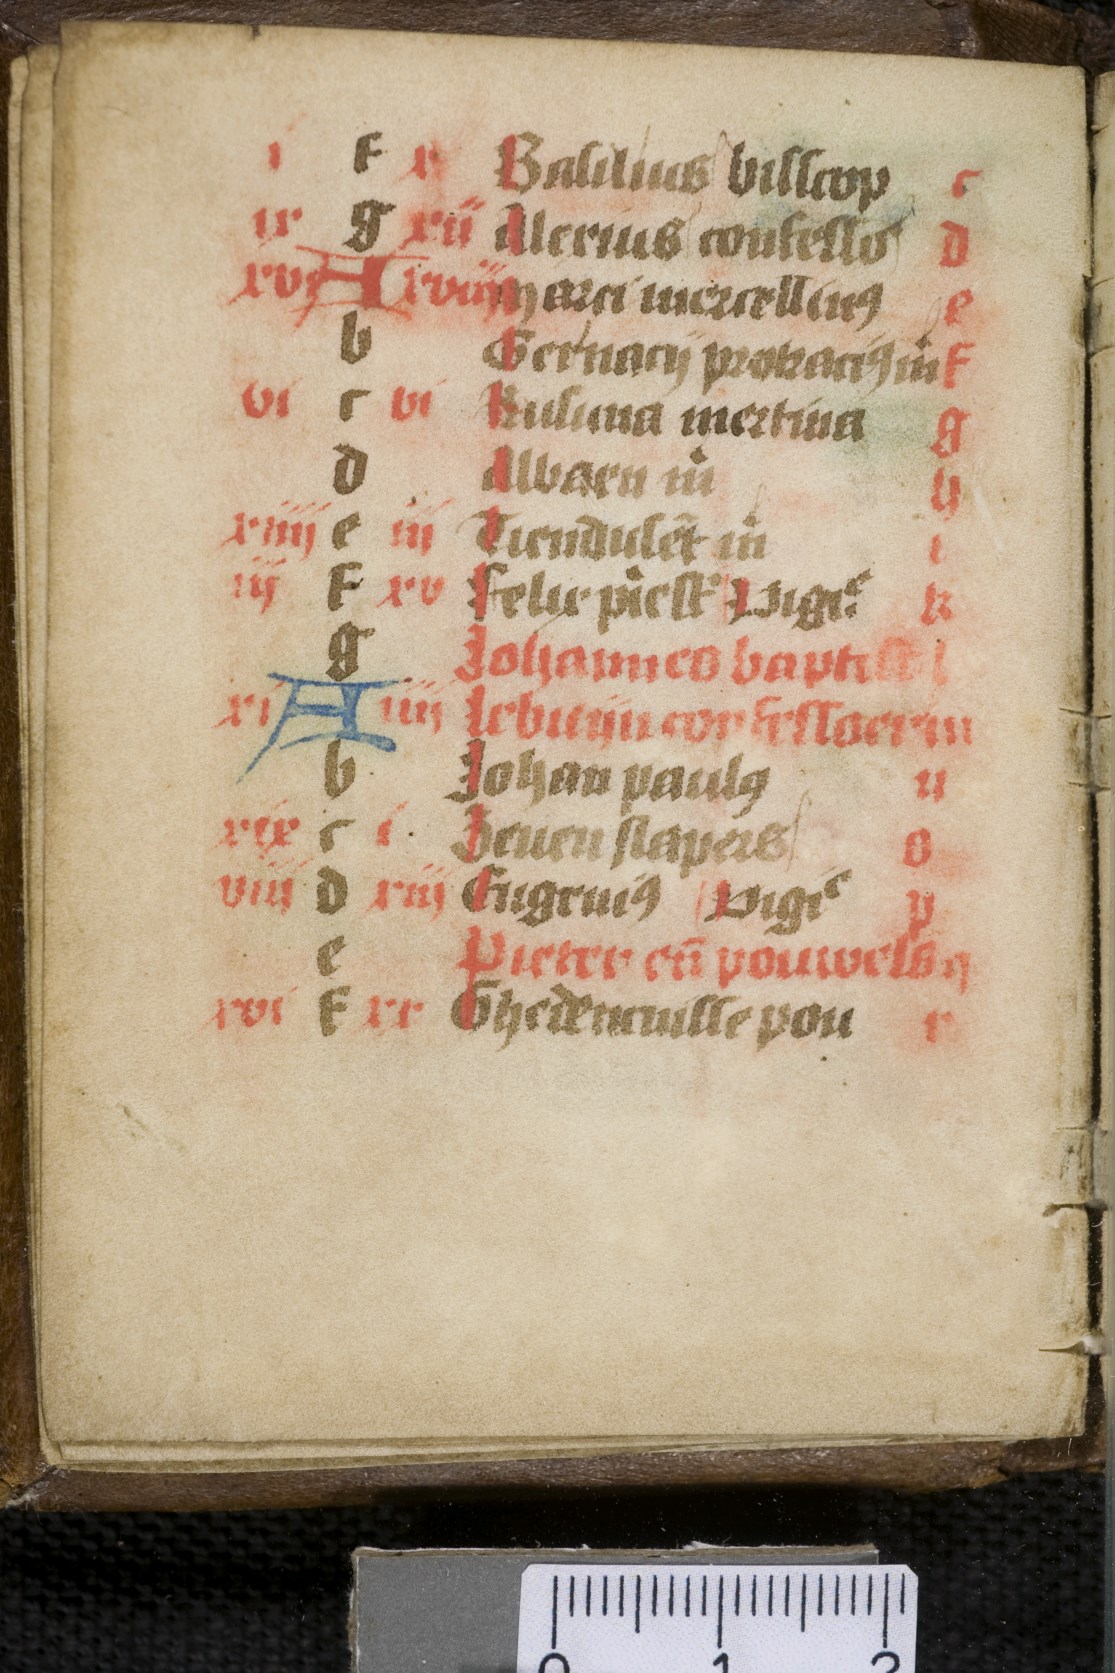 i f x Basilius bisscop c
ix g xii Alexius confesso' d
xvi A xviii marci mercellin9 e
b Geruacij protracis9 m̄ f
vi c vi Rufuna mertina g
d Albaen m̄ h
xiiij e iij Tiendusēt m̄ i
iij f xv Felix p'iest' Vigie k
g Johannes baptist l
xi A iiij Lebuijn confessoer m
b Johan paul9 n
xix c i Zeuen slapers o
viij d xiij Eugeni9 Vigie p
e Pieter eñ pouwels q
xvi f xx Ghedenenisse pou r
0 1 2